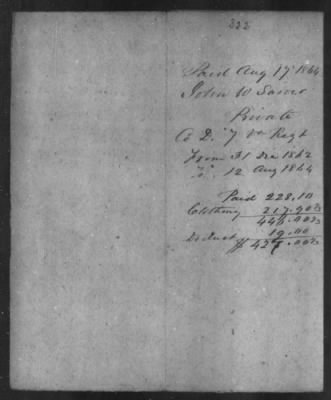 222
Paid Aug 17 1864
John W
Private
Co D. 7 Regt
From 31 Dec 1862
To 12 Aug 1864
Paid 228.10
Clothing 217.90
446.00
Deduct 19.00
$ 427.00